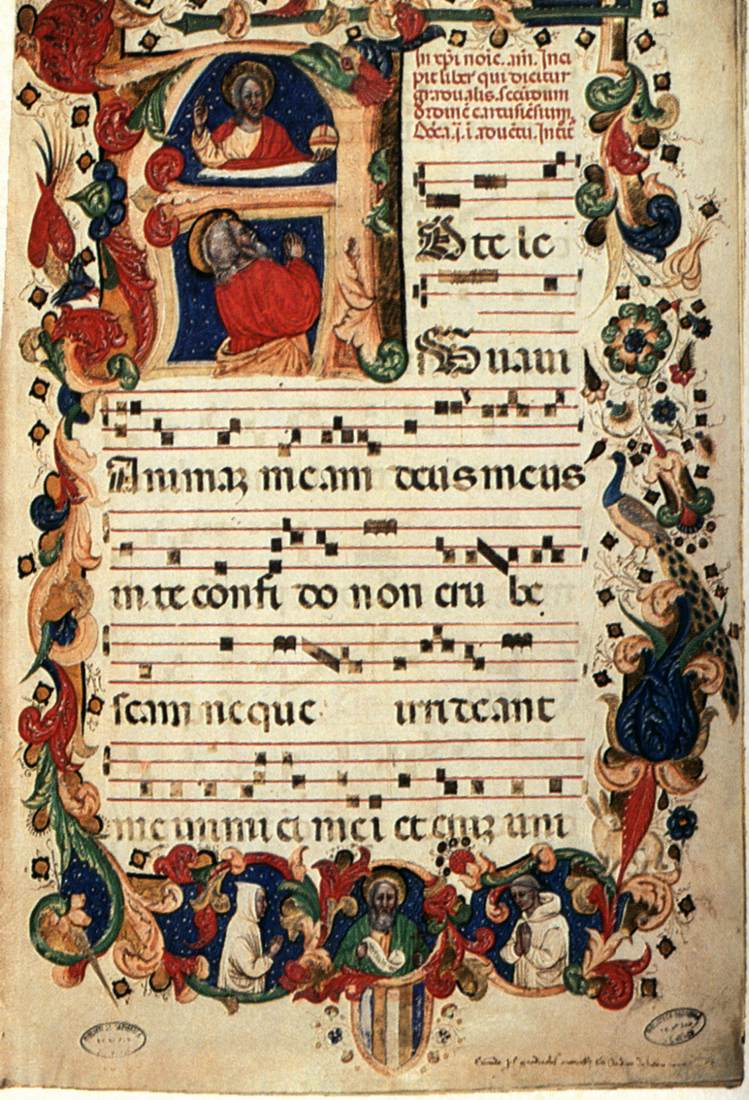 In xpi noie. am. Inci
pit liber qui dicitur
gradualis. secundum
ordinē cartusiēsium.
Dn̄ca. i. i. aduētu. Introit
D te le
uaui
Animaꝫ meam deus meus
in te confi do non eru be
scam neque irrideant
me inimi ci mei et eniꝫ uni